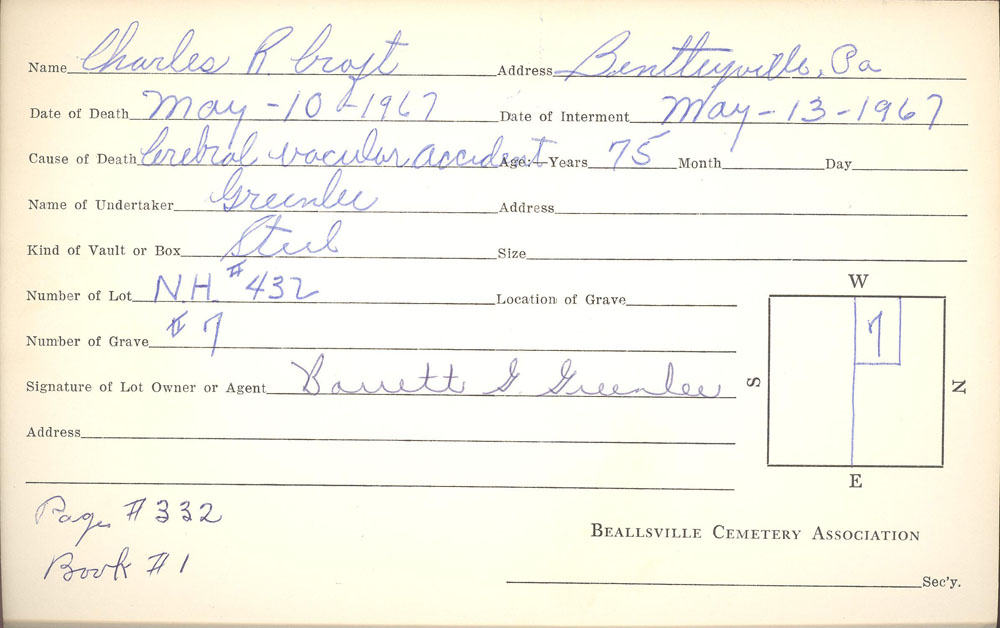 Name Charles R. Croft Address Bentleyville, Pa
Date of Death May-10-1967 Date of Interment May-13-1967
Cause of Death Cerebral vacular accident Age:—Years 75 Month Day
Name of Undertaker Greenlee Address
Kind of Vault or Box Steel Size
Number of Lot N.H. #432 Location of Grave
Number of Grave #7
Signature of Lot Owner or Agent Barrett G. Greenlee
Address
W
7
S
N
E
Page #332
Book #1
BEALLSVILLE CEMETERY ASSOCIATION
Sec'y.